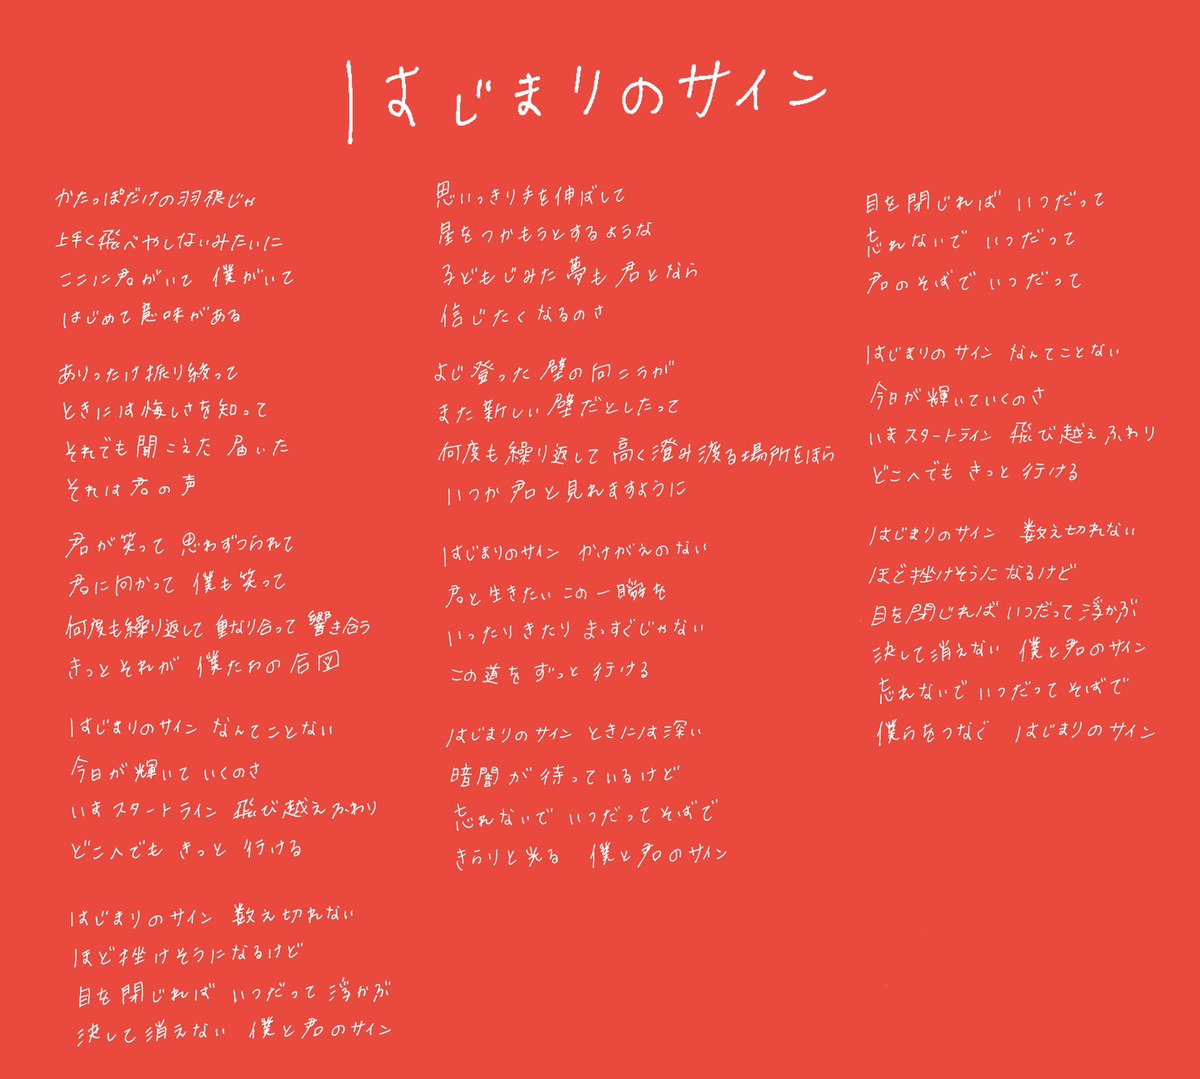 はじまりのサイン
かたっぽだけの羽根じゃ
上手く飛べやしないみたいに
ここに君がいて 僕がいて
はじめて意味がある
ありったけ振り絞って
ときには悔しさを知って
それでも聞こえた 届いた
それは君の声
君が笑って 思わずつられて
君に向かって 僕も笑って
何度も繰り返して 重なり合って 響き合う
きっとそれが 僕たちの合図
はじまりのサイン なんてことない
今日が輝いて いくのさ
いまスタートライン 飛び越えふわり
どこへでも きっと 行ける
はじまりのサイン 数え切れない
ほど挫けそうになるけど
目を閉じれば いつだって 浮かぶ
決して消えない 僕と君のサイン
思いっきり手を伸ばして
星をつかもうとするような
子どもじみた夢も 君となら
信じたくなるのさ
よじ登った壁の向こうが
また新しい壁だとしたって
何度も繰り返して 高く澄み渡る場所をほら
いつか君と見れますように
はじまりのサイン かけがえのない
君と生きたい この一瞬を
いったりきたり まっすぐじゃない
この道を ずっと 行ける
はじまりのサイン ときには深い
暗闇が待っているけど
忘れないで いつだってそばで
きらりと光る 僕と君のサイン
目を閉じれば いつだって
忘れないで いつだって
君のそばで いつだって
はじまりのサイン なんてことない
今日が輝いていくのさ
いまスタートライン 飛び越えふわり
どこへでも きっと 行ける
はじまりのサイン 数え切れない
ほど挫けそうになるけど
目を閉じれば いつだって浮かぶ
決して消えない 僕と君のサイン
忘れないで いつだってそばで
僕らをつなぐ はじまりのサイン